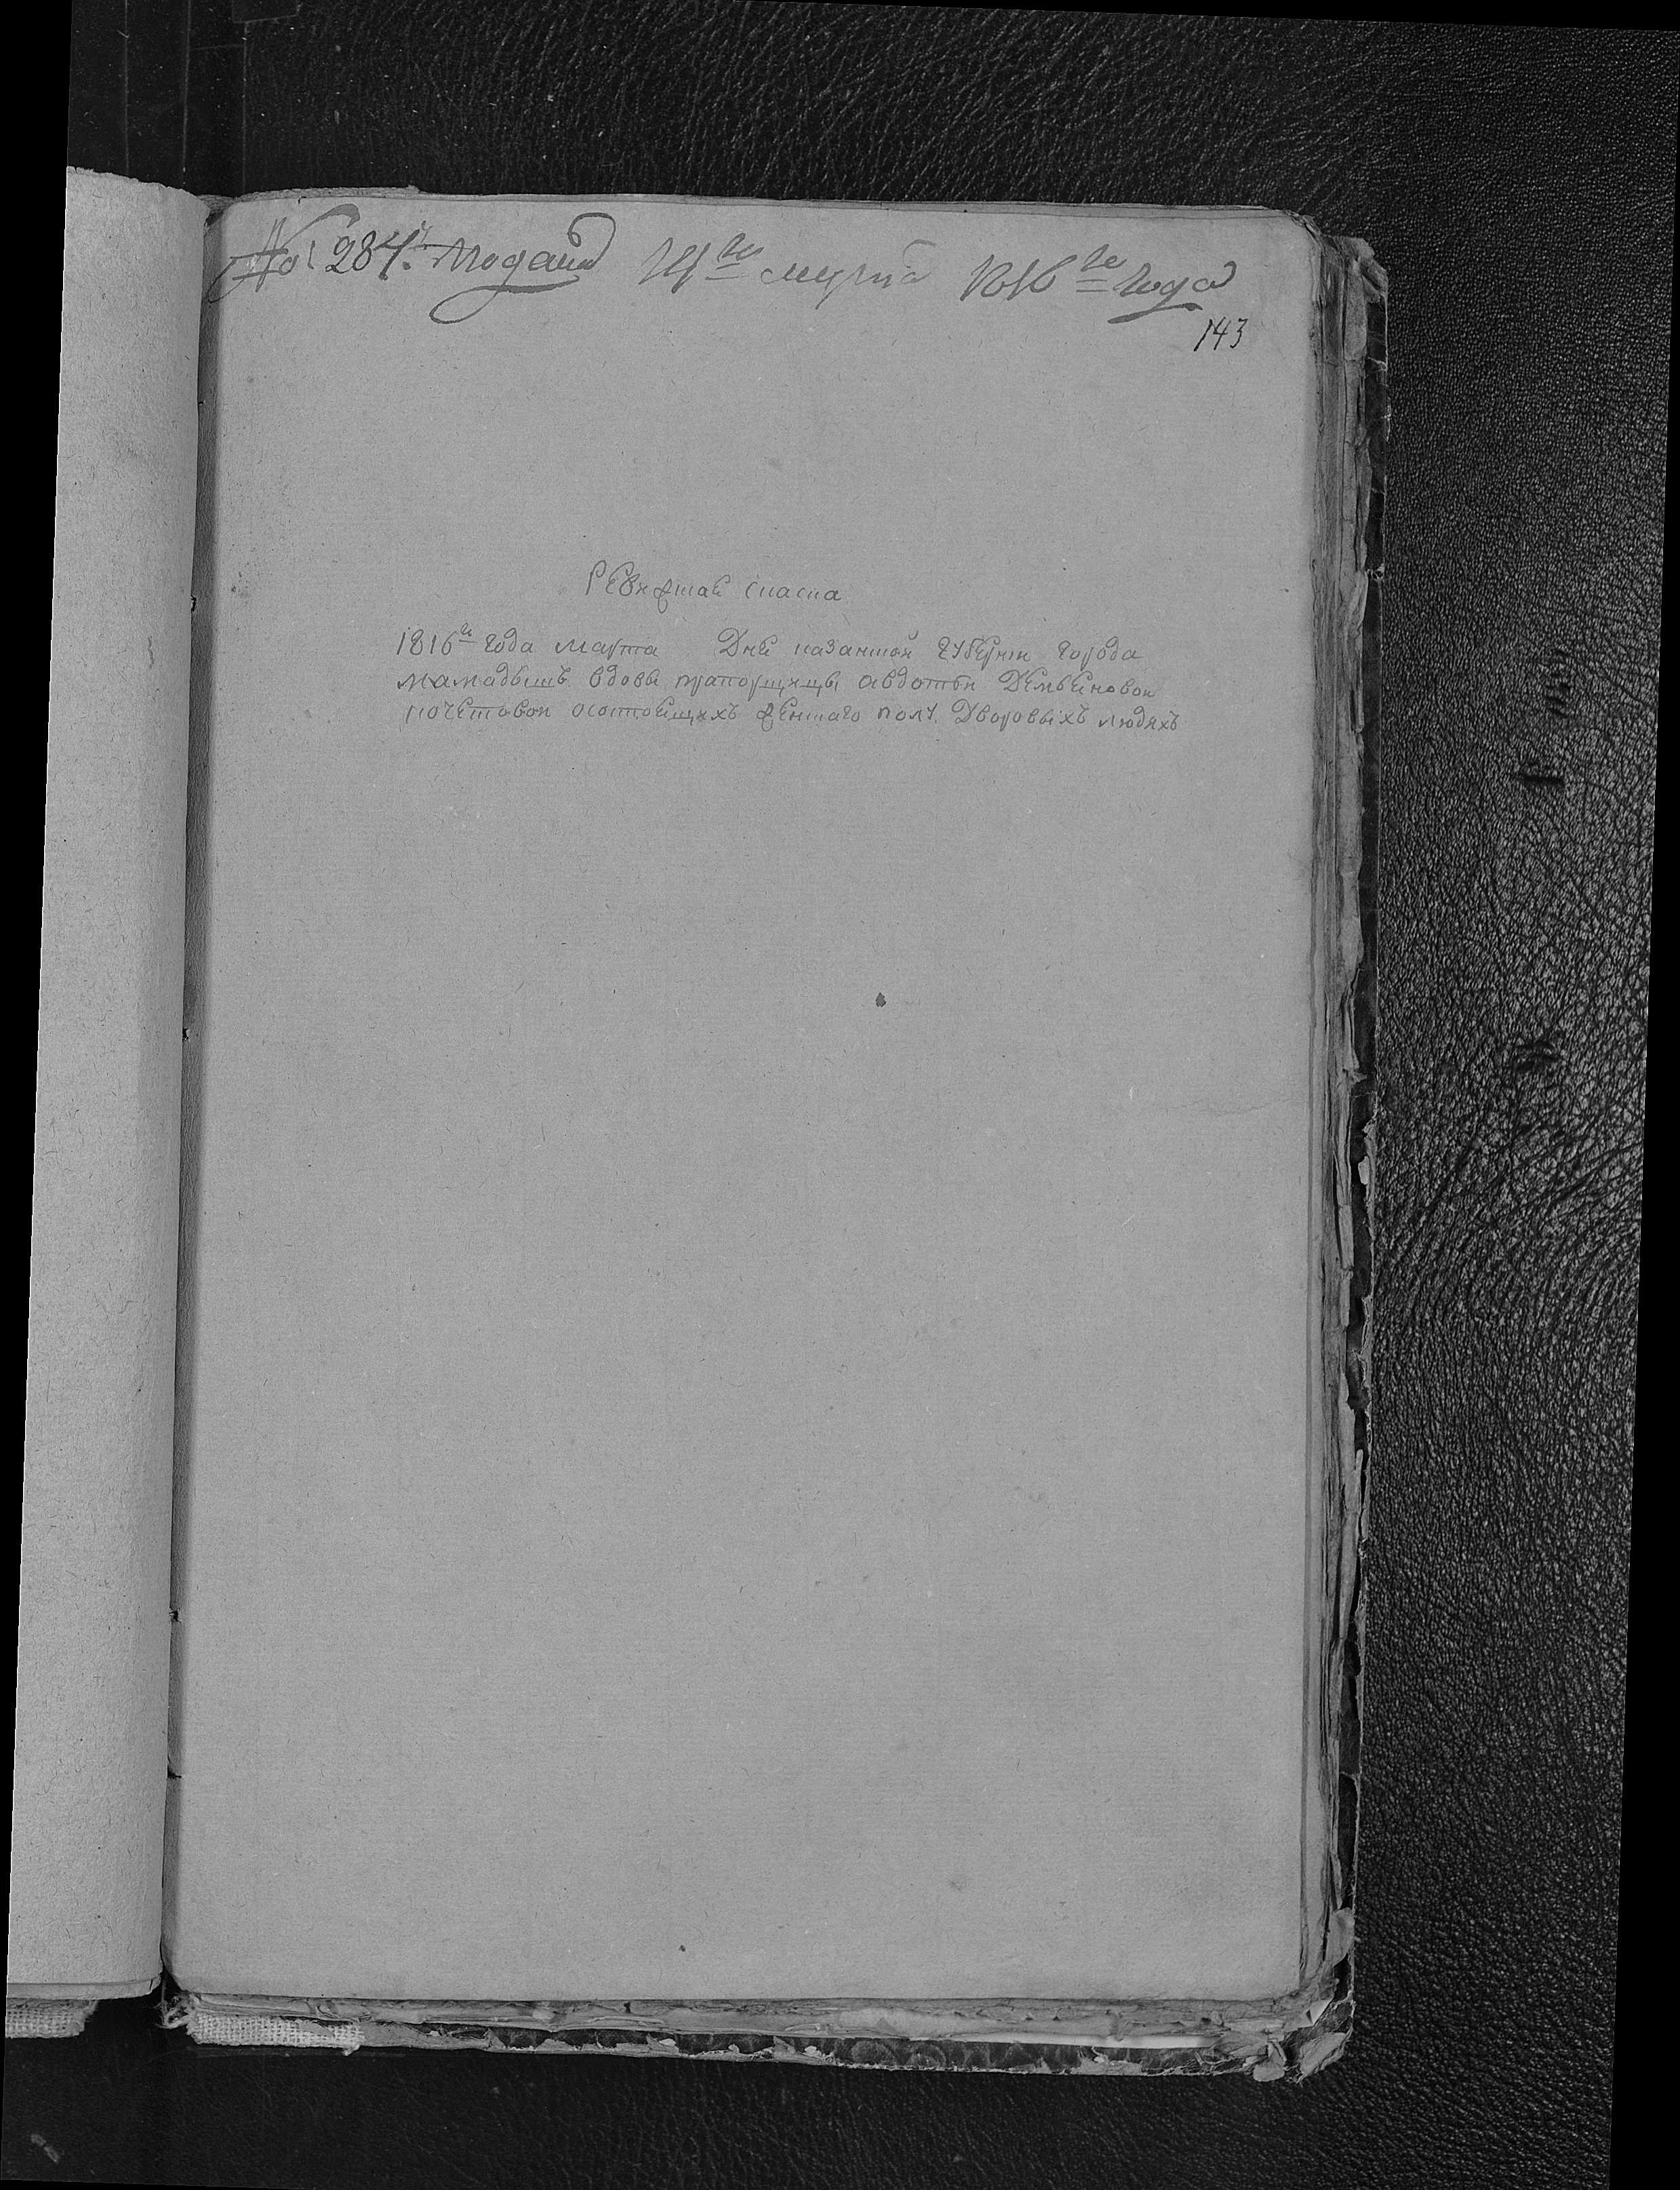 № 284. Подана 14го марта 1816го года
143
Ревижская скаска
1816го года марта Дня казанской губернии города
мамадышъ вдовы прапорщицы авдотьи Демьеновой
осостоещихъ женскаго полу Дворовыхъ людяхъ